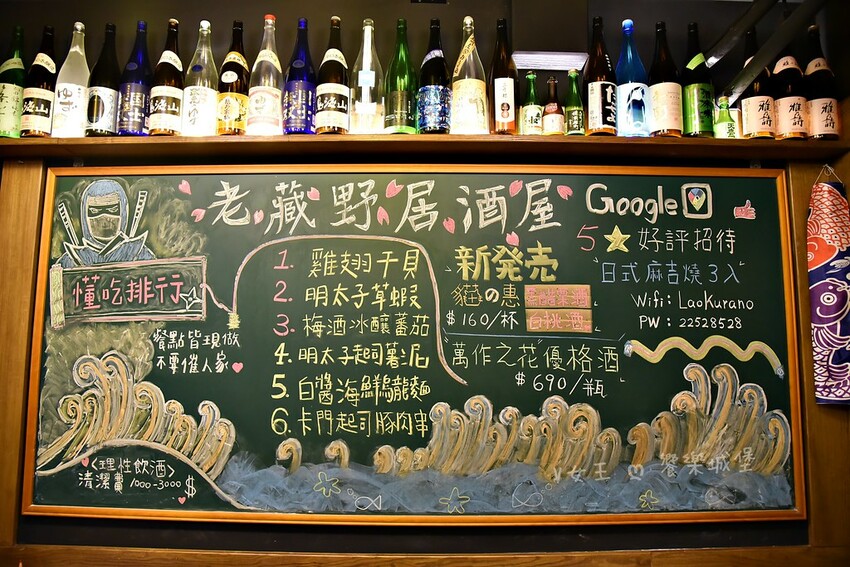 老藏野居酒屋
Google
5★好評招待
"日式麻吉燒3入"
Wifi: LaoKurano
PW: 22528528
懂吃排行
餐點皆現做
不要催人家
1. 雞翅干貝
2. 明太子草蝦
3. 梅酒冰釀蕃茄
4. 明太子起司薯泥
5. 白醬海鮮烏龍麵
6. 卡門起司豚肉串
新発売
貓の惠
白桃酒
$160/杯
"萬作之花"優格酒
$690/瓶
<理性飲酒>
清潔費 1000-3000 $
女王 饗樂城堡